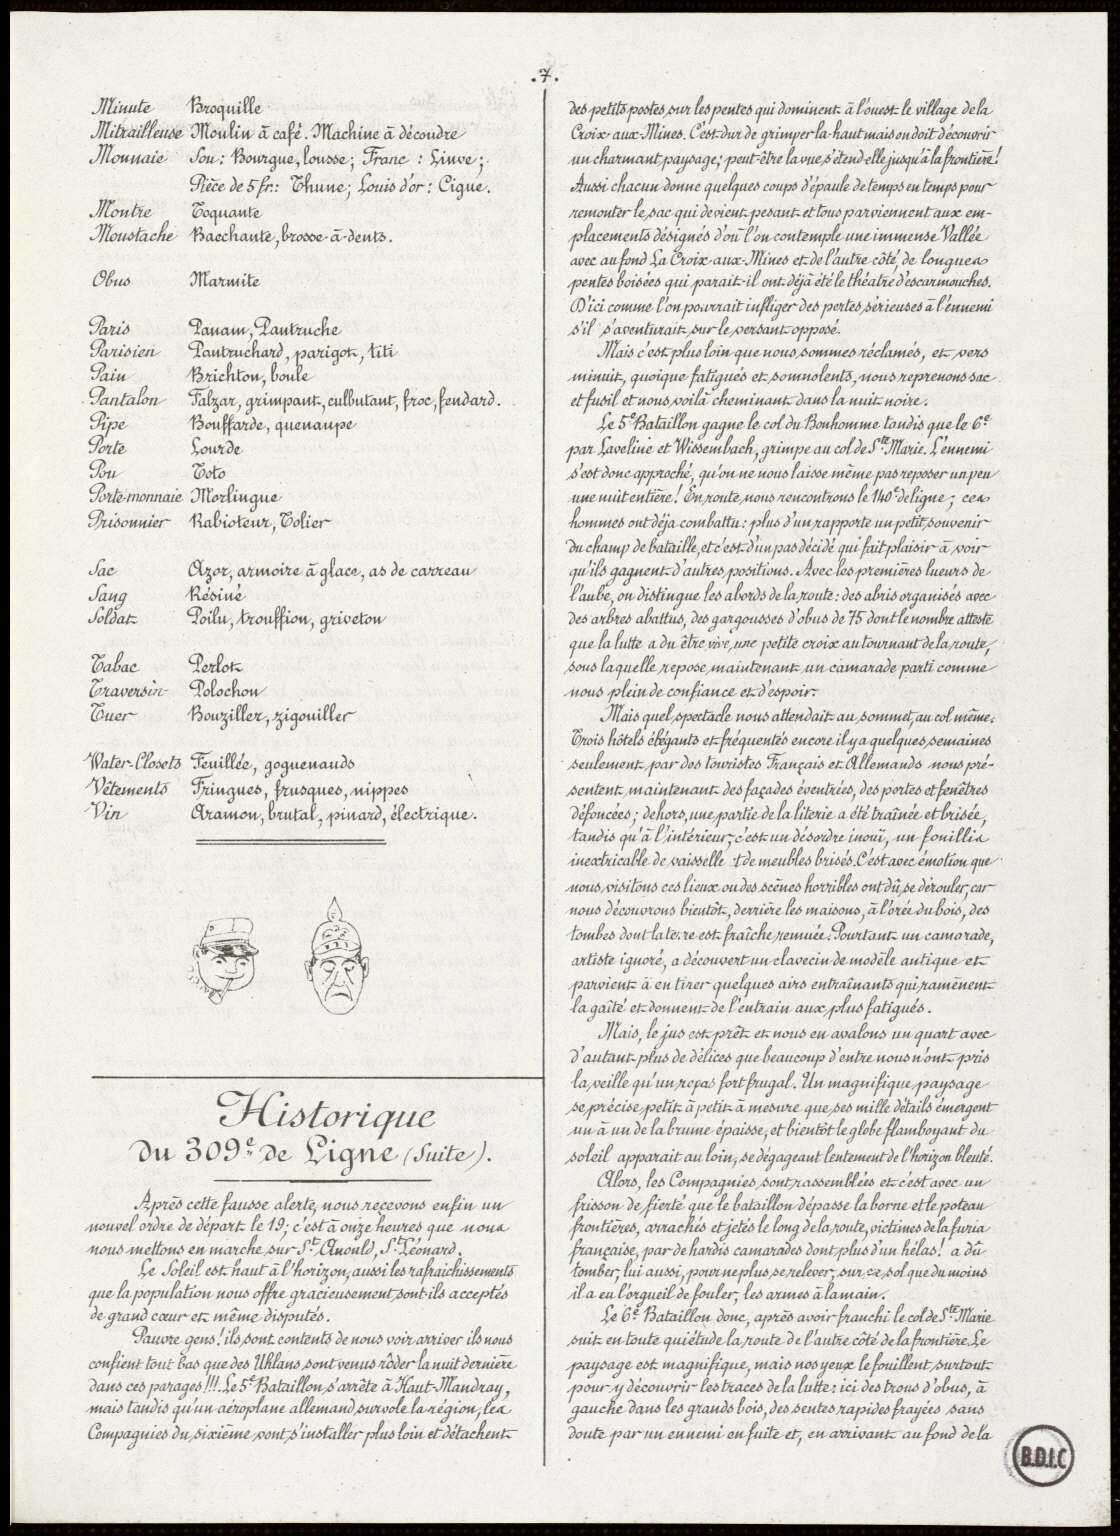 .7.
Minute Broquille
Mitrailleuse Moulin à café. Machine à découdre
Monnaie Sou : Bourgue, lousse ; Franc : Linve ;
Pièce de 5 fr.: Thune ; Louis d'or : Cigue.
Montre Toquante
Moustache Bacchante, brosse-à-dents.
Obus Marmite
Paris Panam, Pantruche
Parisien Pantruchard, parigot, titi
Pain Brichton, boule
Pantalon Falzar, grimpant, culbutant, froc, fendard.
Pipe Bouffarde, quenaupe
Porte Lourde
Pou Toto
Porte-monnaie Morlingue
Prisonnier Rabioteur, Tolier
Sac Azor, armoire à glace, as de carreau
Sang Résiné
Soldat Poilu, trouffion, griveton
Tabac Perlot
Traversin Polochon
Tuer Bouziller, zigouiller
Water-Closets Feuillée, goguenauds
Vêtements Fringues, frusques, nippes
Vin Aramon, brutal, pinard, électrique.
Historique
du 309e de Ligne (Suite).
Après cette fausse alerte, nous reçevons enfin un
nouvel ordre de départ le 19 ; c'est à onze heures que nous
nous mettons en marche sur St Anould, St Léonard.
Le Soleil est haut à l'horizon, aussi les rafraichissements
que la population nous offre gracieusement, sont-ils acceptés
de grand cœur et même disputés.
Pauvre gens ! ils sont contents de nous voir arriver ils nous
confient tout bas que des Uhlans sont venus rôder la nuit dernière
dans ces parages !!! Le 5e Bataillon s'arrête à Haut-Mandray,
mais tandis qu'un aéroplane allemand survole la région, les
Compagnies du sixième vont s'installer plus loin et détachent
des petits postes sur les pentes qui dominent à l'ouest le village de la
Croix-aux-Mines. C'est dur de grimper la-haut mais on doit découvrir
un charmant paysage ; peut-être la vue s'étend-elle jusqu'à la frontière !
Aussi chacun donne quelques coups d'épaule de temps en temps pour
remonter le sac qui devient pesant et tous parviennent aux em-
placements désignés d'où l'on contemple une immense Vallée
avec au fond La Croix-aux-Mines et de l'autre côté, de longues
pentes boisées qui parait-il ont déjà été le théatre d'escarmouches.
D'ici comme l'on pourrait infliger des pertes sérieuses à l'ennemi
s'il s'aventurait sur le versant opposé.
Mais c'est plus loin que nous sommes réclamés, et vers
minuit, quoique fatigués et somnolents, nous reprenons sac
et fusil et nous voilà cheminant dans la nuit noire.
Le 5e Bataillon gagne le col du Bonhomme tandis que le 6e
par Laveline et Wissembach, grimpe au col de Ste Marie. L'ennemi
s'est donc approché, qu'on ne nous laisse même pas reposer un peu
une nuit entière ! En route, nous rencontrons le 140e de ligne ; ces
hommes ont déja combattu : plus d'un rapporte un petit souvenir
du champ de bataille, et c'est d'un pas décidé qui fait plaisir à voir
qu'ils gagnent d'autres positions. Avec les premières lueurs de
l'aube, on distingue les abords de la route : des abris organisés avec
des arbres abattus, des gargousses d'obus de 75 dont le nombre atteste
que la lutte a du être vive, une petite croix au tournant de la route,
sous laquelle repose maintenant un camarade parti comme
nous plein de confiance et d'espoir.
Mais quel spectacle nous attendait au sommet, au col même.
Trois hôtels élégants et fréquentés encore il y a quelques semaines
seulement par des touristes Français et Allemands nous pré-
sentent maintenant des façades éventrées, des portes et fenêtres
défoncées ; dehors, une partie de la literie a été traînée et brisée,
tandis qu'à l'intérieur, c'est un désordre inouï, un fouillis
inextricable de vaisselle & de meubles brisés. C'est avec émotion que
nous visitons ces lieux ou des scènes horribles ont dû se dérouler, car
nous découvrons bientôt, derrière les maisons, à l'orée du bois, des
tombes dont la terre est fraîche remuée. Pourtant un camarade,
artiste ignoré, a découvert un clavecin de modèle antique et
parvient à en tirer quelques airs entraînants qui ramènent
la gaîté et donnent de l'entrain aux plus fatigués.
Mais, le jus est prêt et nous en avalons un quart avec
d'autant plus de délices que beaucoup d'entre nous n'ont pris
la veille qu'un repas fort frugal. Un magnifique paysage
se précise petit à petit à mesure que ses mille détails émergent
un à un de la brume épaisse, et bientôt le globe flamboyant du
soleil apparait au loin, se dégageant lentement de l'horizon bleuté.
Alors, les Compagnies sont rassemblées et c'est avec un
frisson de fierté que le bataillon dépasse la borne et le poteau
frontières, arrachés et jetés le long de la route, victimes de la furia
française, par de hardis camarades dont plus d'un hélas ! a dû
tomber, lui aussi, pour ne plus se relever, sur ce sol que du moins
il a eu l'orgueil de fouler, les armes à la main.
Le 6e Bataillon donc, après avoir franchi le col de Ste Marie
suit en toute quiétude la route de l'autre côté de la frontière. Le
paysage est magnifique, mais nos yeux le fouillent surtout
pour y découvrir les traces de la lutte : ici des trous d'obus, à
gauche dans les grands bois, des sentes rapides frayées sans
doute par un ennemi en fuite et, en arrivant au fond de la
B.D.I.C